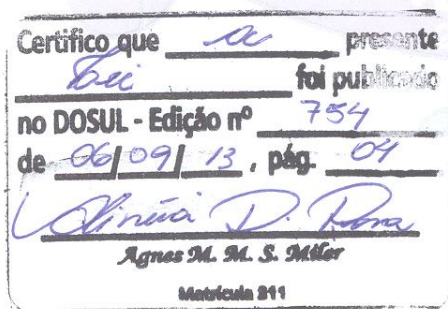 Certifico que a presente
Lei foi publicado
no DOSUL - Edição nº 754
de 06/09/13, pág. 04
D.
Agnes M. M. S. Miler
Matrícula 811